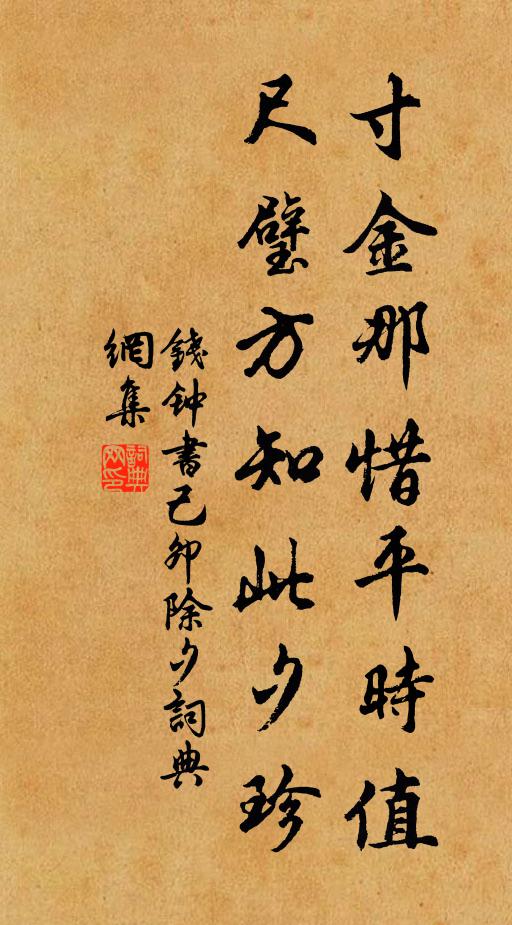 寸金那惜平時值
尺璧方知此夕珍
錢钟書己卯除夕詞典
網集
詞典
网印